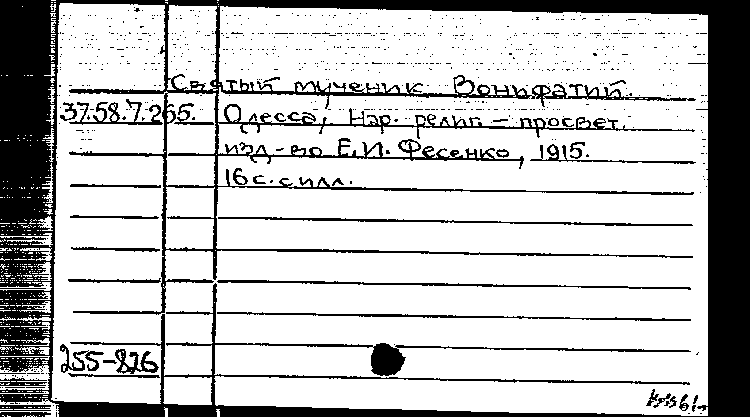 Святый мученик Вонифатий.
37.58.7.265. Одесса, Нар. религ-просвет.
изд-во Е.И. Фесенко, 1915.
16 с. с илл.
255-826